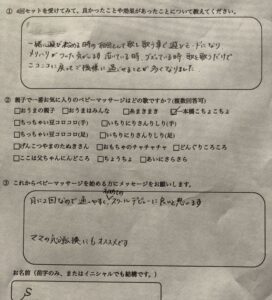 ① 4回セットを受けてみて、良かったことや効果があったことについて教えてください。
一緒に遊び始める時の
として歌を歌う事で
メリハリがついた気がします 泣いている時、ぐずっている時 歌を歌うだけで
ニコニコに戻ってご機嫌に過ごせることが多くなりました
② 親子で一番お気に入りのベビーマッサージはどの歌ですか?(複数回答可)
□おうまの親子 □おうまはみんな □あまきまき ☑一本橋こちょこちょ
□ちっちゃい豆コロコロ(手) □いちにりきんりしり(手)
□ちっちゃい豆コロコロ(足) □いちにりきんりしり(足)
□げんこつやまのたぬきさん □おもちゃのチャチャチャ □どんぐりころころ
□ここは父ちゃんにんどころ □ちょうちょ □あいにさらさら
③ これからベビーマッサージを始める方にメッセージをお願いします。
月に2回なので通いやすく スクールデビューに良いと思います
ママの気分転換にもオススメです
お名前(苗字のみ、またはイニシャルでも結構です。)
S